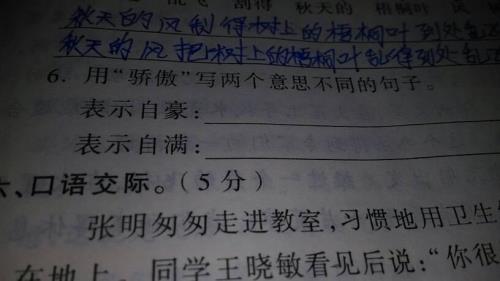 乱飞 刮得 秋天的 梧桐叶 风
秋天的风刮得树上的梧桐叶到处乱飞
秋天的风把树上的梧桐叶刮得到处乱飞
6. 用“骄傲”写两个意思不同的句子。
表示自豪：
表示自满：
六、口语交际。(5分)
张明匆匆走进教室,习惯地用卫生
在地上。同学王晓敏看见后说:“你很